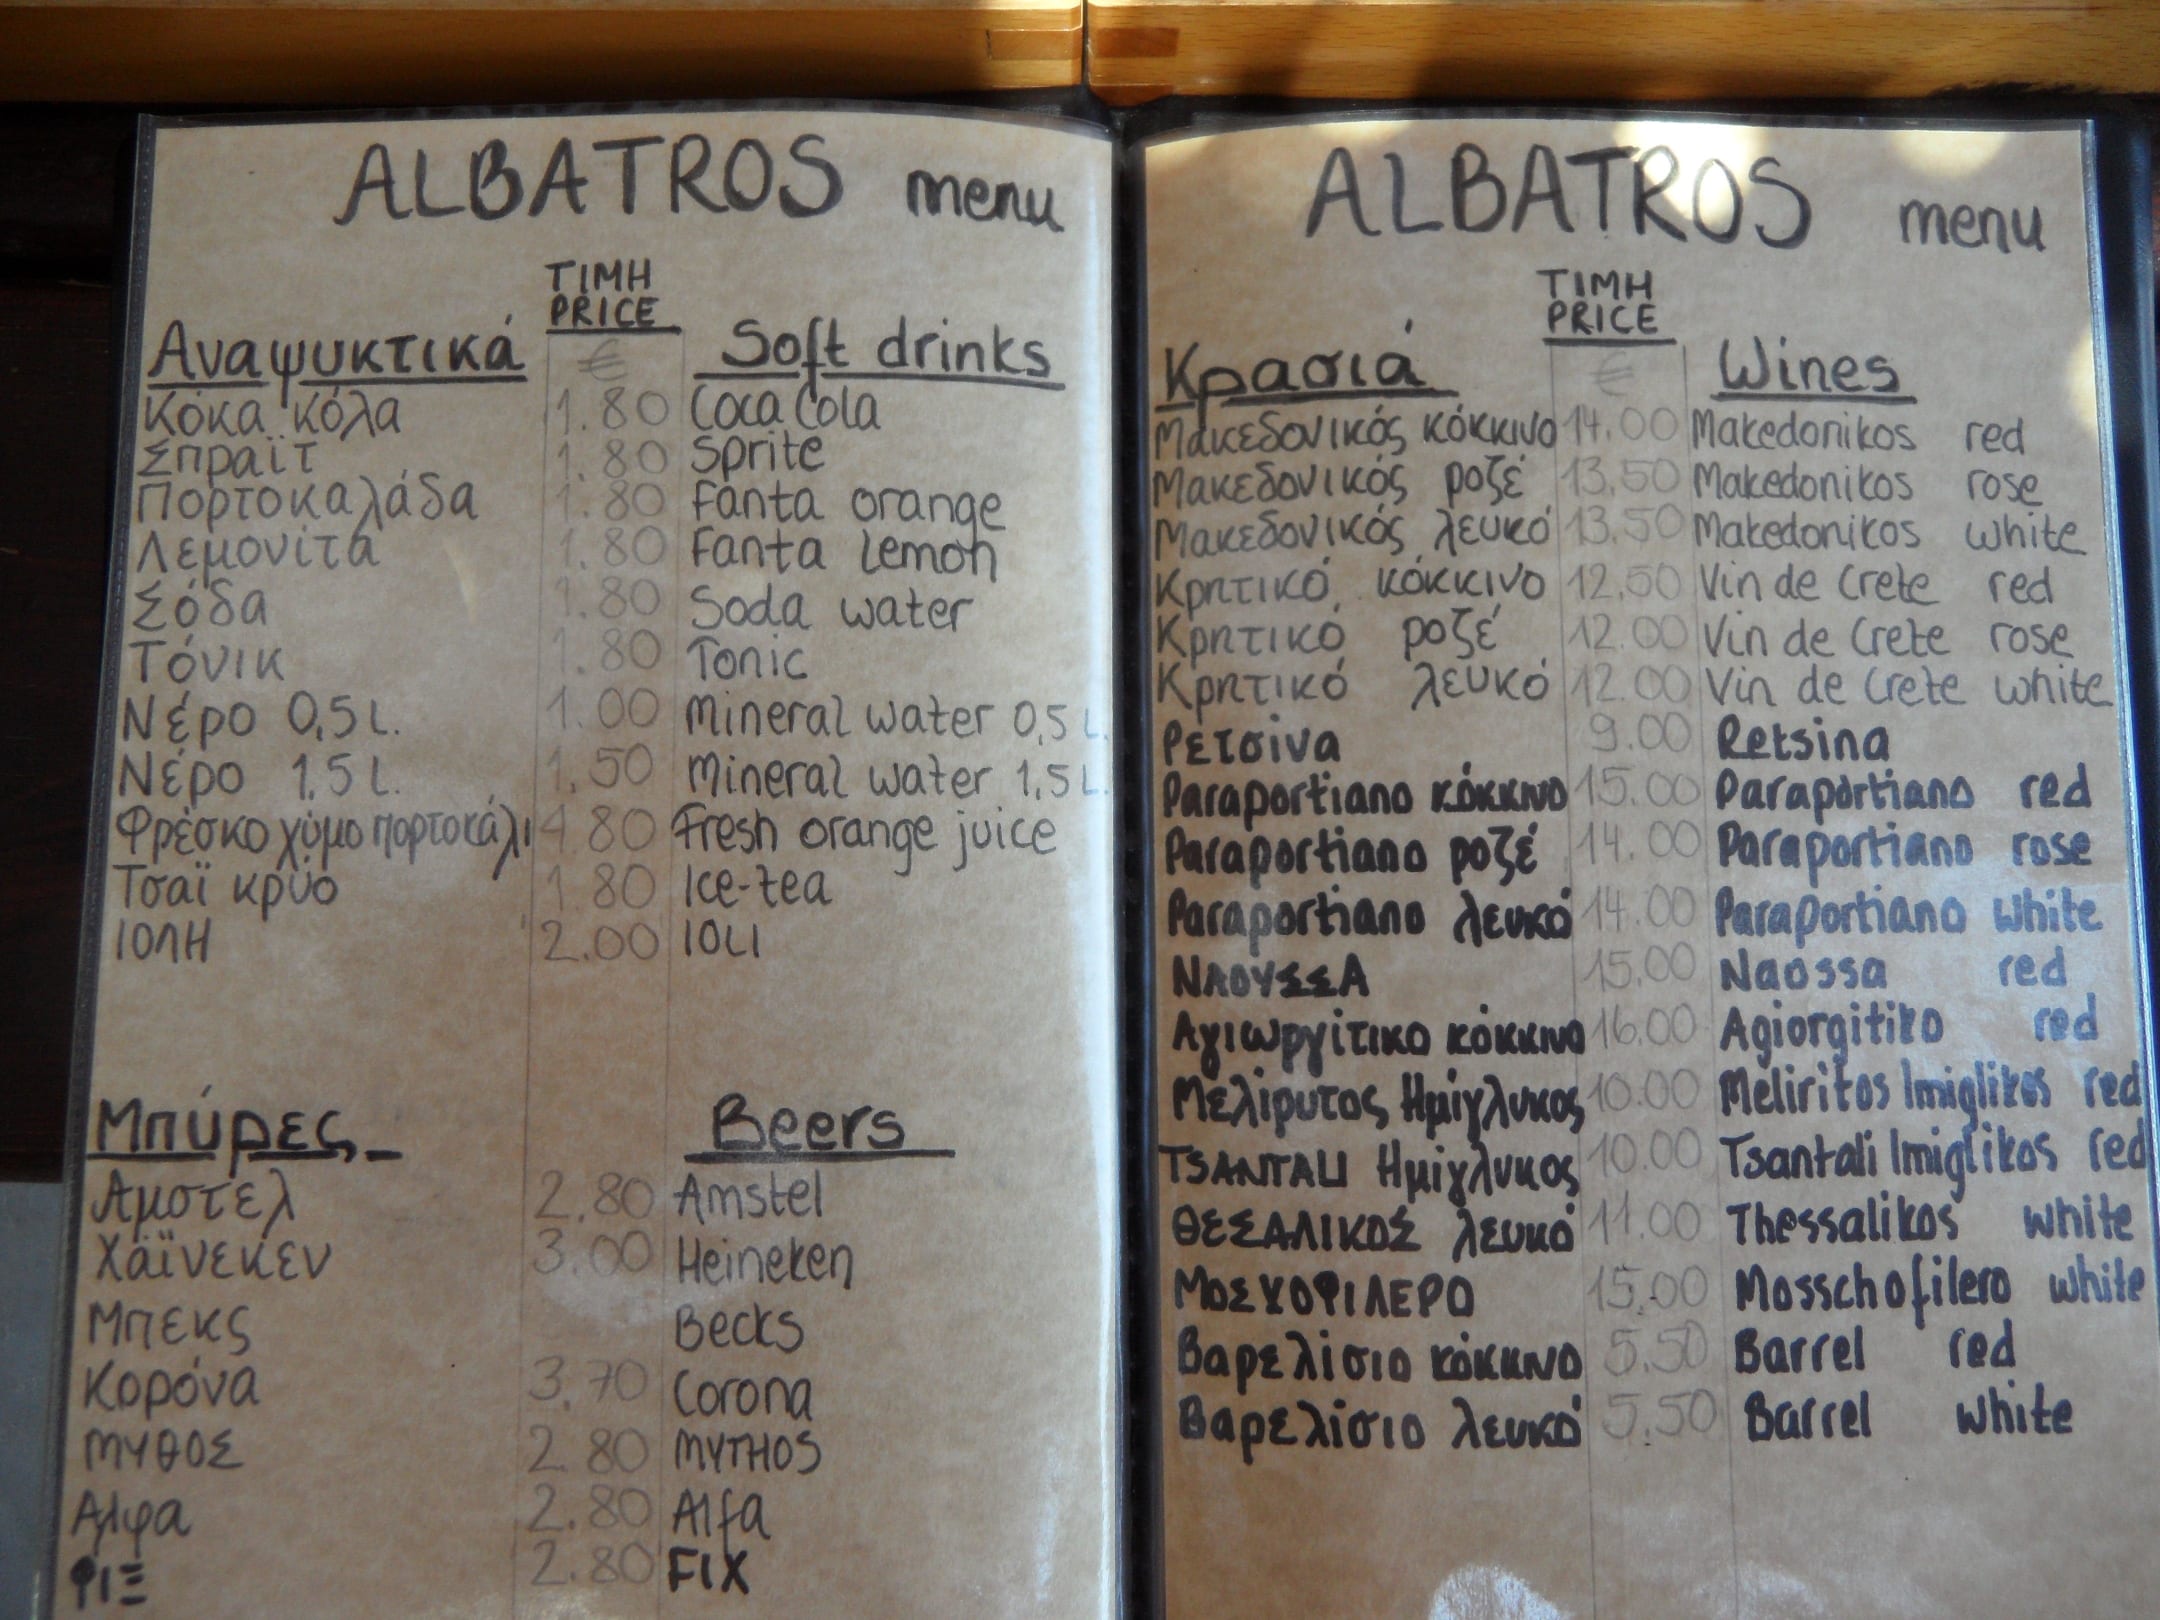 ALBATROS menu
ΤΙΜΗ
PRICE
Αναψυκτικά € Soft drinks
Κόκα κόλα 1.80 Coca Cola
Σπραϊτ 1.80 Sprite
Πορτοκαλάδα 1.80 Fanta orange
Λεμονίτα 1.80 Fanta Lemon
Σόδα 1.80 Soda water
Τόνικ 1.80 Tonic
Νέρο 0,5 L. 1.00 Mineral water 0,5 L.
Νέρο 1,5 L. 1,50 Mineral water 1,5 L.
Φρέσκο χύμο πορτοκάλι 4.80 Fresh orange juice
Τσαϊ κρύο 1.80 Ice-tea
ΙΟΛΗ 2.00 IOLI
Μπύρες Beers
Αμστελ 2.80 Amstel
Χάϊνεκεν 3.00 Heineken
Μπεκς Becks
Κορόνα 3.70 Corona
ΜΥΘΟΣ 2.80 MYTHOS
Αλφα 2.80 Alfa
ΦΙΞ 2.80 FIX
ALBATROS menu
ΤΙΜΗ
PRICE
Κρασιά € Wines
Μακεδονικός κόκκινο 14.00 Makedonikos red
Μακεδονικός ροζέ 13.50 Makedonikos rose
Μακεδονικός λευκό 13.50 Makedonikos white
Κρητικό κόκκινο 12.50 Vin de Crete red
Κρητικό ροζέ 12.00 Vin de Crete rose
Κρητικό λευκό 12.00 Vin de Crete white
Ρετσίνα 9.00 Retsina
Paraportiano κόκκινο 15.00 Paraportiano red
Paraportiano ροζέ 14.00 Paraportiano rose
Paraportiano λευκό 14.00 Paraportiano white
ΝΑΟΥΣΣΑ 15.00 Naossa red
Αγιωργίτικο κόκκινο 16.00 Agiorgitiko red
Μελίρυτος Ημίγλυκος 10.00 Meliritos Imiglikos red
TSANTALI Ημίγλυκος 10.00 Tsantali Imiglikos red
ΘΕΣΑΛΙΚΟΣ λευκό 11.00 Thessalikos white
ΜΟΣΧΟΦΙΛΕΡΟ 15.00 Mosschofilero white
Βαρελίσιο κόκκινο 5.50 Barrel red
Βαρελίσιο λευκό 5.50 Barrel white